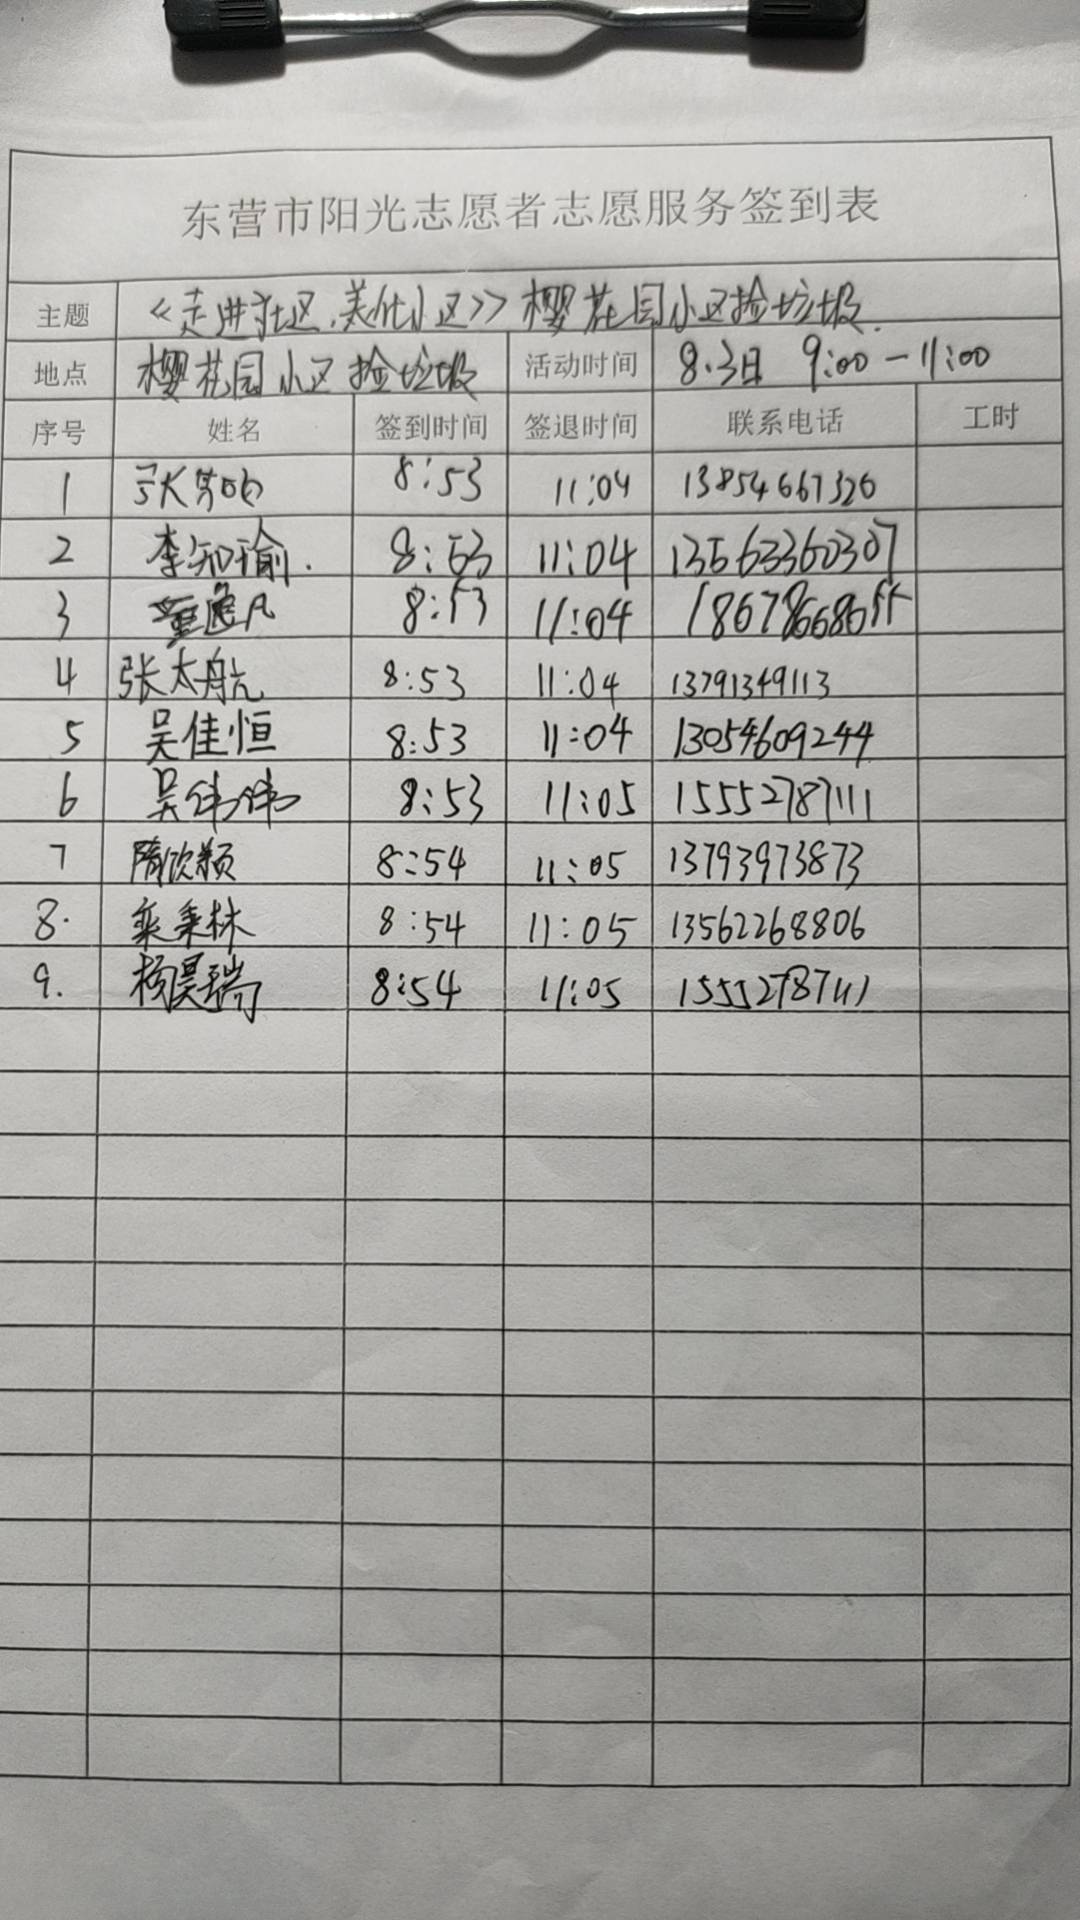 东营市阳光志愿者志愿服务签到表
主题 《走进社区,美化小区》樱花园小区捡垃圾.
地点 樱花园小区捡垃圾 活动时间 8.3日 9:00-11:00
序号 姓名 签到时间 签退时间 联系电话 工时
1 8:53 11:04 13854667320
2 李知瑜. 8:53 11:04 13563360307
3 8:53 11:04
4 张太航 8:53 11:04 13791349113
5 吴佳恒 8:53 11:04 13054609244
6 吴伟伟 8:53 11:05 15552787111
7 隋欣颖 8:54 11:05 13793973873
8. 秉林 8:54 11:05 13562268806
9. 杨昊瑞 8:54 11:05 15552787111